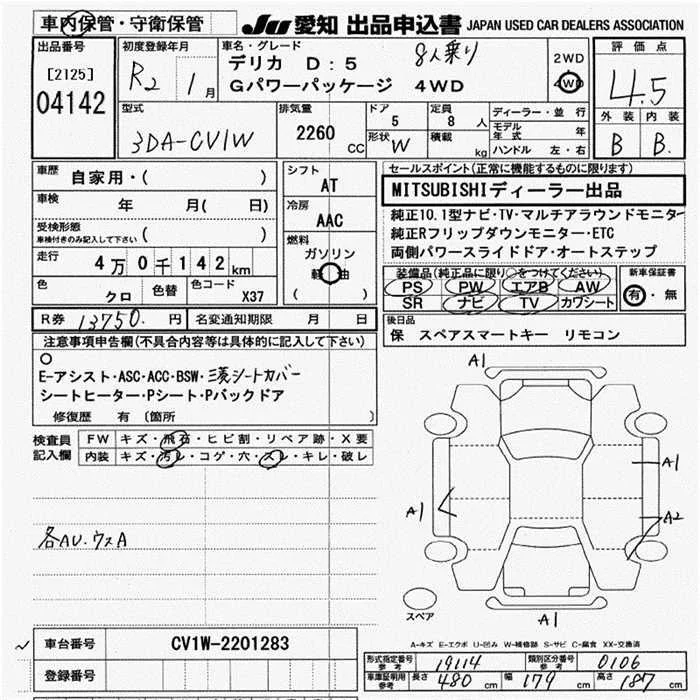 車内保管・守衛保管
JU 愛知 出品申込書 JAPAN USED CAR DEALERS ASSOCIATION
出品番号
[2125]
04142
初度登録年月
R2 1月
車名・グレード
8人乗り
デリカ D:5
Gパワーパッケージ 4WD
2WD
4WD
評価点
4.5
外装 内装
B B.
型式
3DA-CV1W
排気量
2260 CC
ドア
5
定員
8 人
形状
W
積載
kg
ディーラー・並行
モデル年式 年
ハンドル 左・右
車歴
自家用・( )
車検
年 月( 日)
受検形態
車検付きのみ記入して下さい ( )
走行
4万0千142km
色
クロ
色替
色コード
X37
シフト
AT
冷房
AAC
燃料
ガソリン
軽油
( )
セールスポイント(正常に機能するものに限ります)
MITSUBISHIディーラー出品
純正10.1型ナビ・TV・マルチアラウンドモニター
純正Rフリップダウンモニター・ETC
両側パワースライドドア・オートステップ
装備品(純正品に限り○をつけてください)
PS PW エアB AW
SR ナビ TV カワシート
新車保証書
有・無
R券 13750. 円
名変通知期限 月 日
後日品
保 スペアスマートキー リモコン
注意事項申告欄(不具合内容等は具体的に記入して下さい)
○
E-アシスト・ASC・ACC・BSW・三菱シートカバー
シートヒーター・Pシート・Pバックドア
修復歴 有 〔箇所 〕
検査員記入欄
FW キズ・飛石・ヒビ割・リペア跡・X要
内装 キズ・汚レ・コゲ・穴・スレ・キレ・破レ
各AU.ウスA
A1
A1
A1
A2
A1
スペア
A-キズ E-エクボ U-凹み W-補修跡 S-サビ C-腐食 XX-交換済
車台番号
CV1W-2201283
登録番号
形式指定番号 参考 19114
類別区分番号 参考 0106
車庫証明用 参考 長さ 480 cm 幅 179 cm 高さ 187 cm